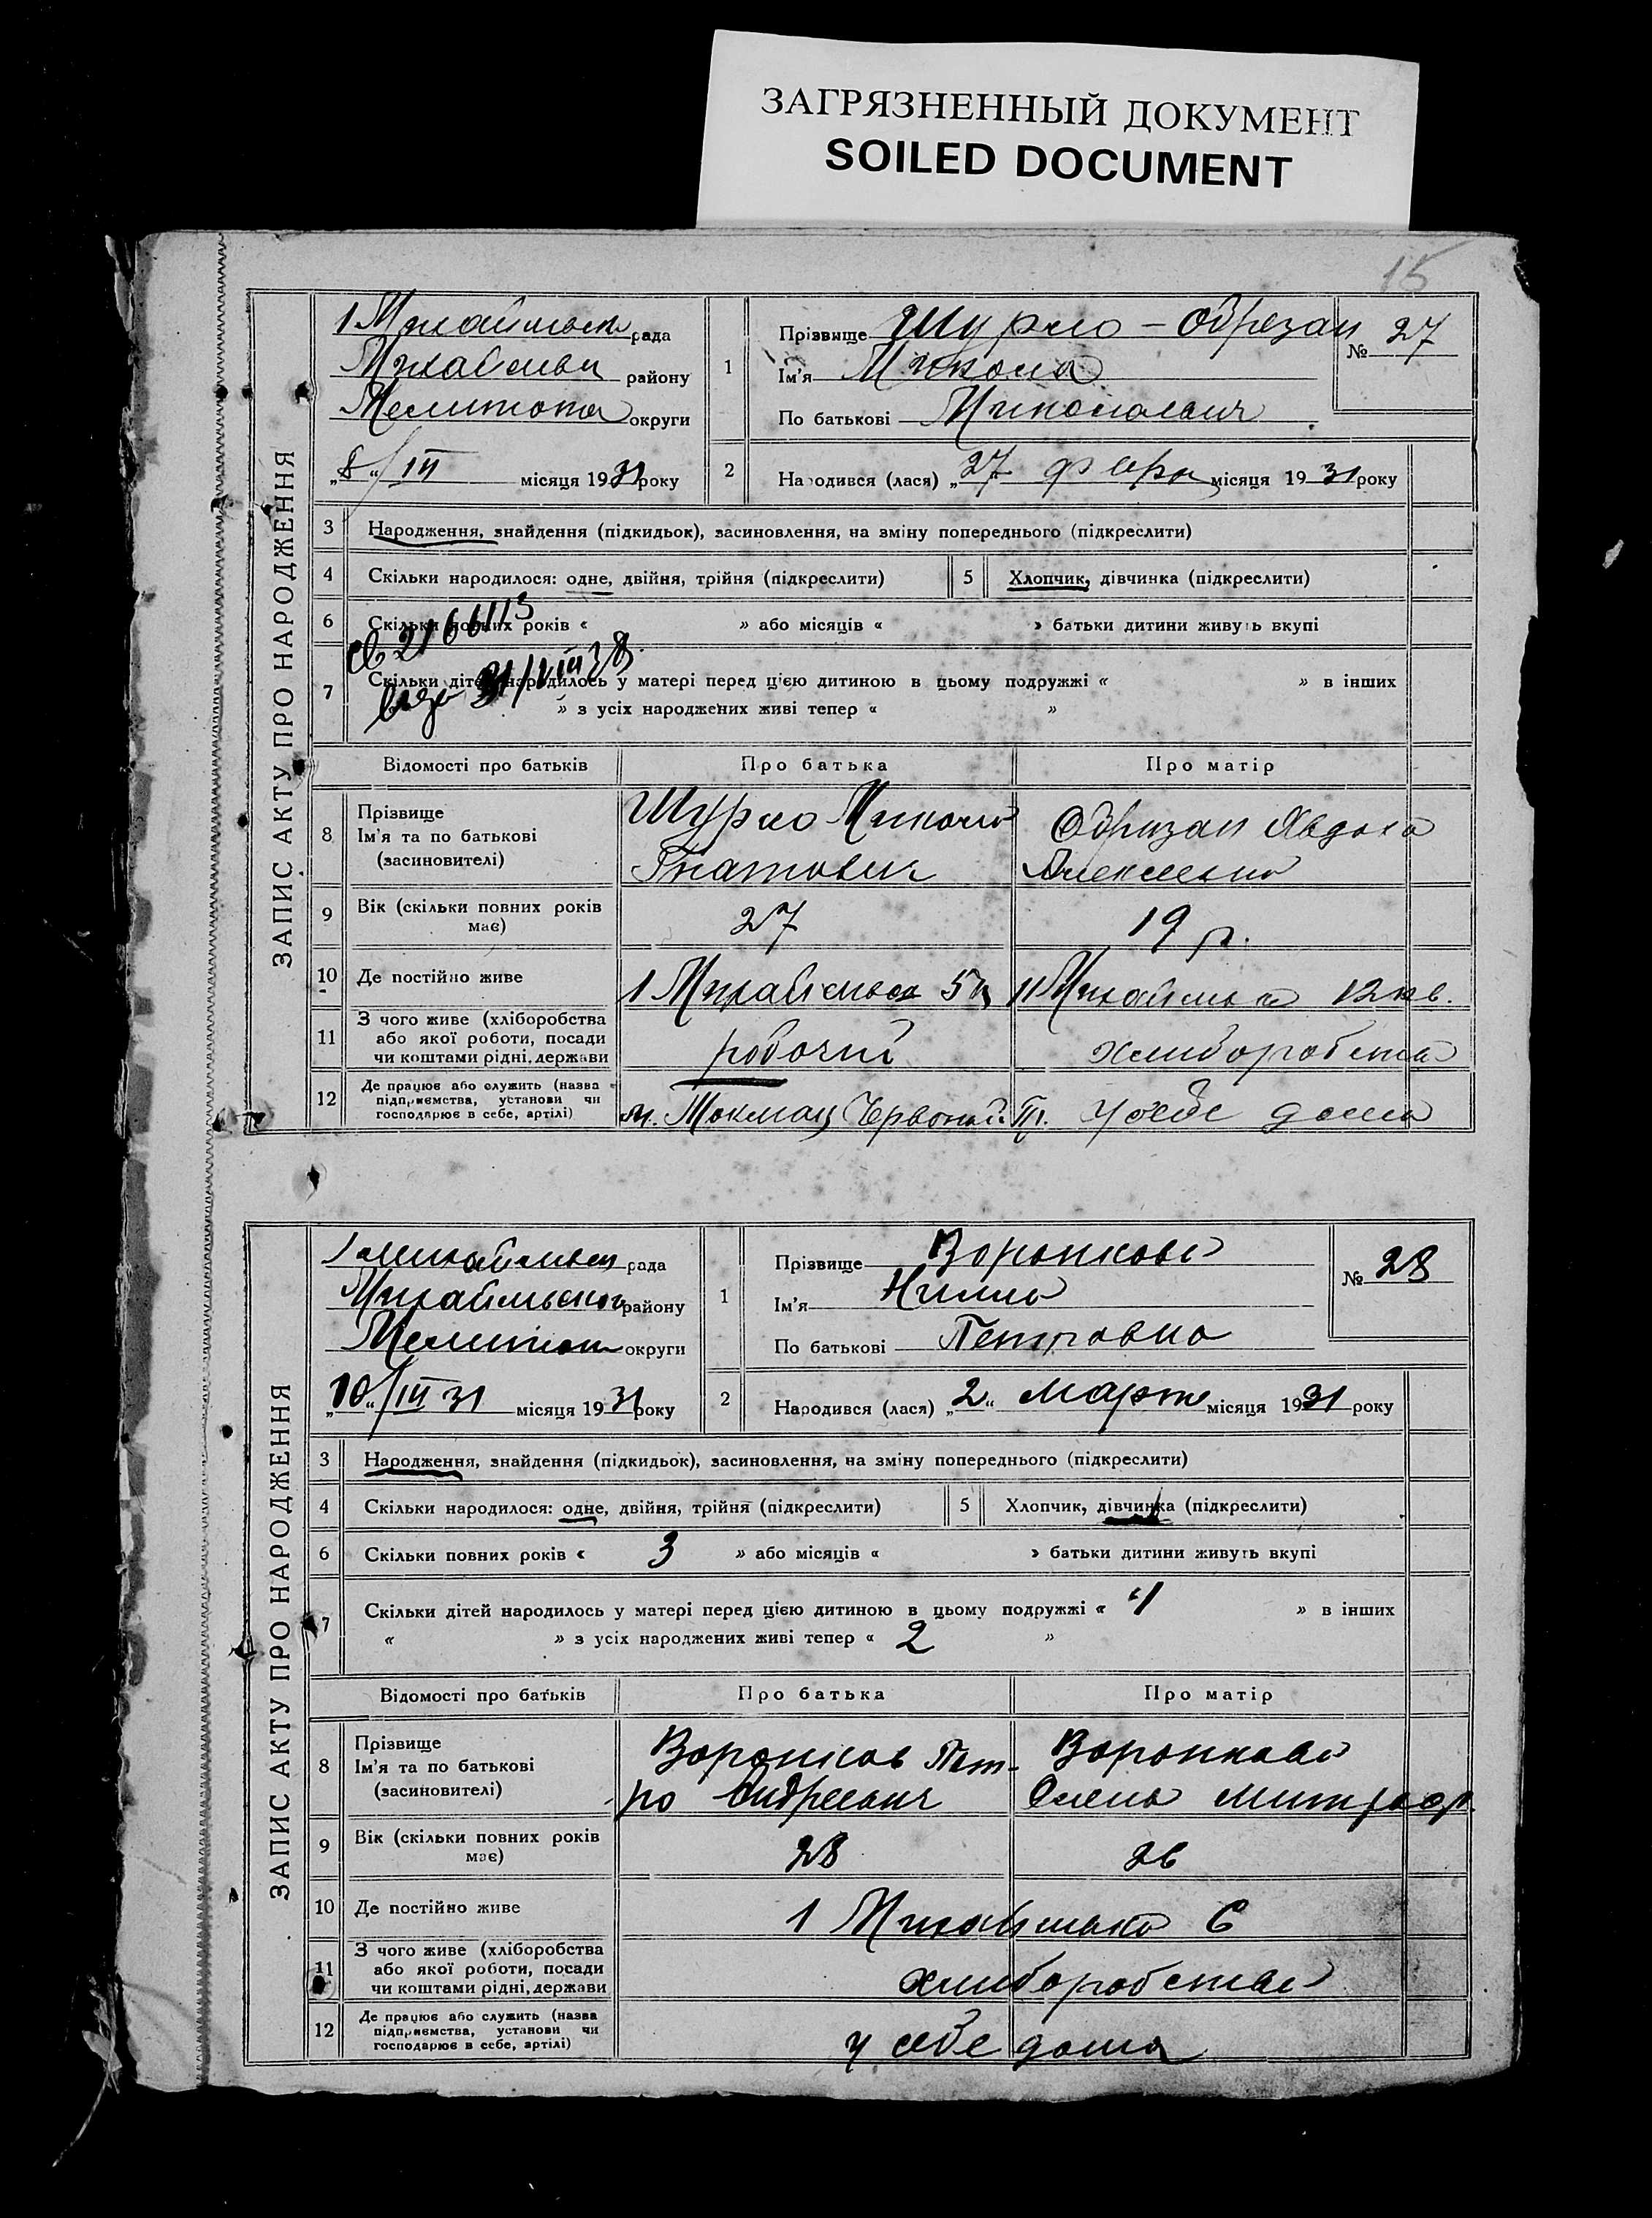 ЗАГРЯЗНЕННЫЙ ДОКУМЕНТ
SOILED DOCUMENT
15
ЗАПИС АКТУ ПРО НАРОДЖЕННЯ
рада
району
округи
„8“/III місяця 1931 року
1
Прізвище Шурло - Обрезан
Ім'я Микола
По батькові Миколаевич
№ 27
2
Народився (лася) „27 февр місяця 1931 року
3 Народження, знайдення (підкидьок), засиновлення, на зміну попереднього (підкреслити)
4 Скільки народилося: одне, двійня, трійня (підкреслити)
5 Хлопчик, дівчинка (підкреслити)
6 Скільки повних років « » або місяців « » батьки дитини живуть вкупі
7 Скільки дітей народилось у матері перед цією дитиною в цьому подружжі « » в інших
» з усіх народжених живі тепер « »
Відомості про батьків Про батька Про матір
8 Прізвище
Ім'я та по батькові
(засиновителі)
Шурло Микола
Гнатович
Обризан Явдоха
Алексеевна
9 Вік (скільки повних років має) 27 19 р.
10 Де постійно живе
1 Михайловка 12 кв.
11 З чого живе (хліборобства
або якої роботи, посади
чи коштами рідні, держави
робочий хлиборобства
12 Де працює або служить (назва
підприємства, установи чи
господарює в себе, артілі)
м. Токмак Червоний Пр. у себе дома
ЗАПИС АКТУ ПРО НАРОДЖЕННЯ
рада
Михайлевского району
округи
„10“/III 31 місяця 1931 року
1
Прізвище Воронкова
Ім'я Нилла
По батькові Петровна
№ 28
2
Народився (лася) „2“ марта місяця 1931 року
3 Народження, знайдення (підкидьок), засиновлення, на зміну попереднього (підкреслити)
4 Скільки народилося: одне, двійня, трійня (підкреслити)
5 Хлопчик, дівчинка (підкреслити)
6 Скільки повних років « 3 » або місяців « » батьки дитини живуть вкупі
7 Скільки дітей народилось у матері перед цією дитиною в цьому подружжі « 1 » в інших
« » з усіх народжених живі тепер « 2 »
Відомості про батьків Про батька Про матір
8 Прізвище
Ім'я та по батькові
(засиновителі)
Воронков Пет-
ро Андреевич
Воронкова
Олена Митроф.
9 Вік (скільки повних років має) 28 26
10 Де постійно живе 1 Михайлвка 6
11 З чого живе (хліборобства
або якої роботи, посади
чи коштами рідні, держави
хлиборобства
12 Де працює або служить (назва
підприємства, установи чи
господарює в себе, артілі)
у себе дома